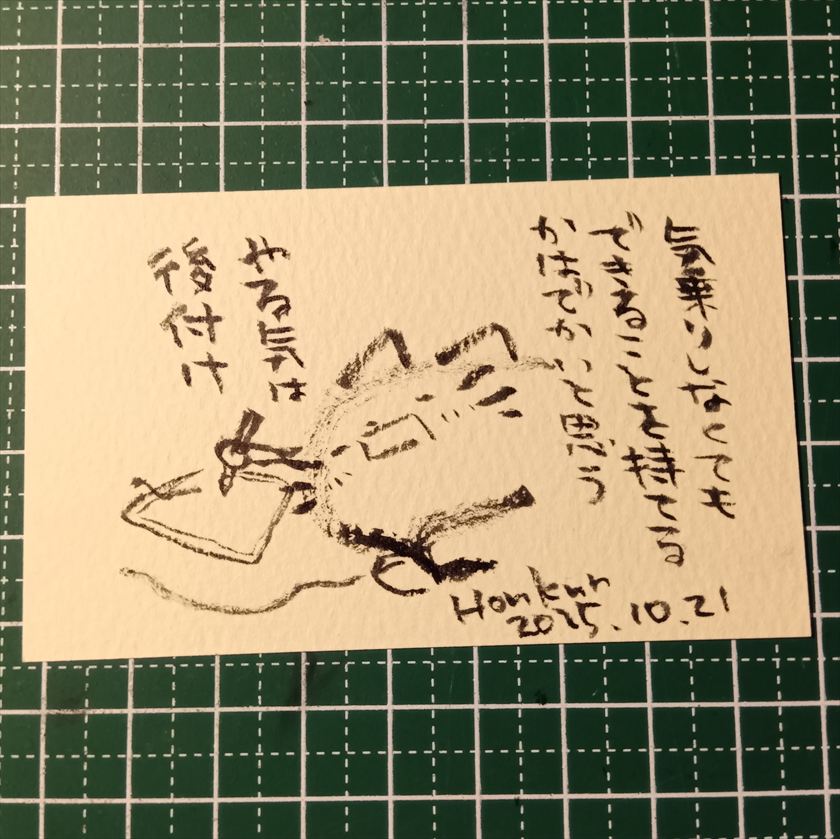 気乗りしなくても
できることを持てる
かはでかいと思う
やる気は
後付け
Honkun
2025.10.21